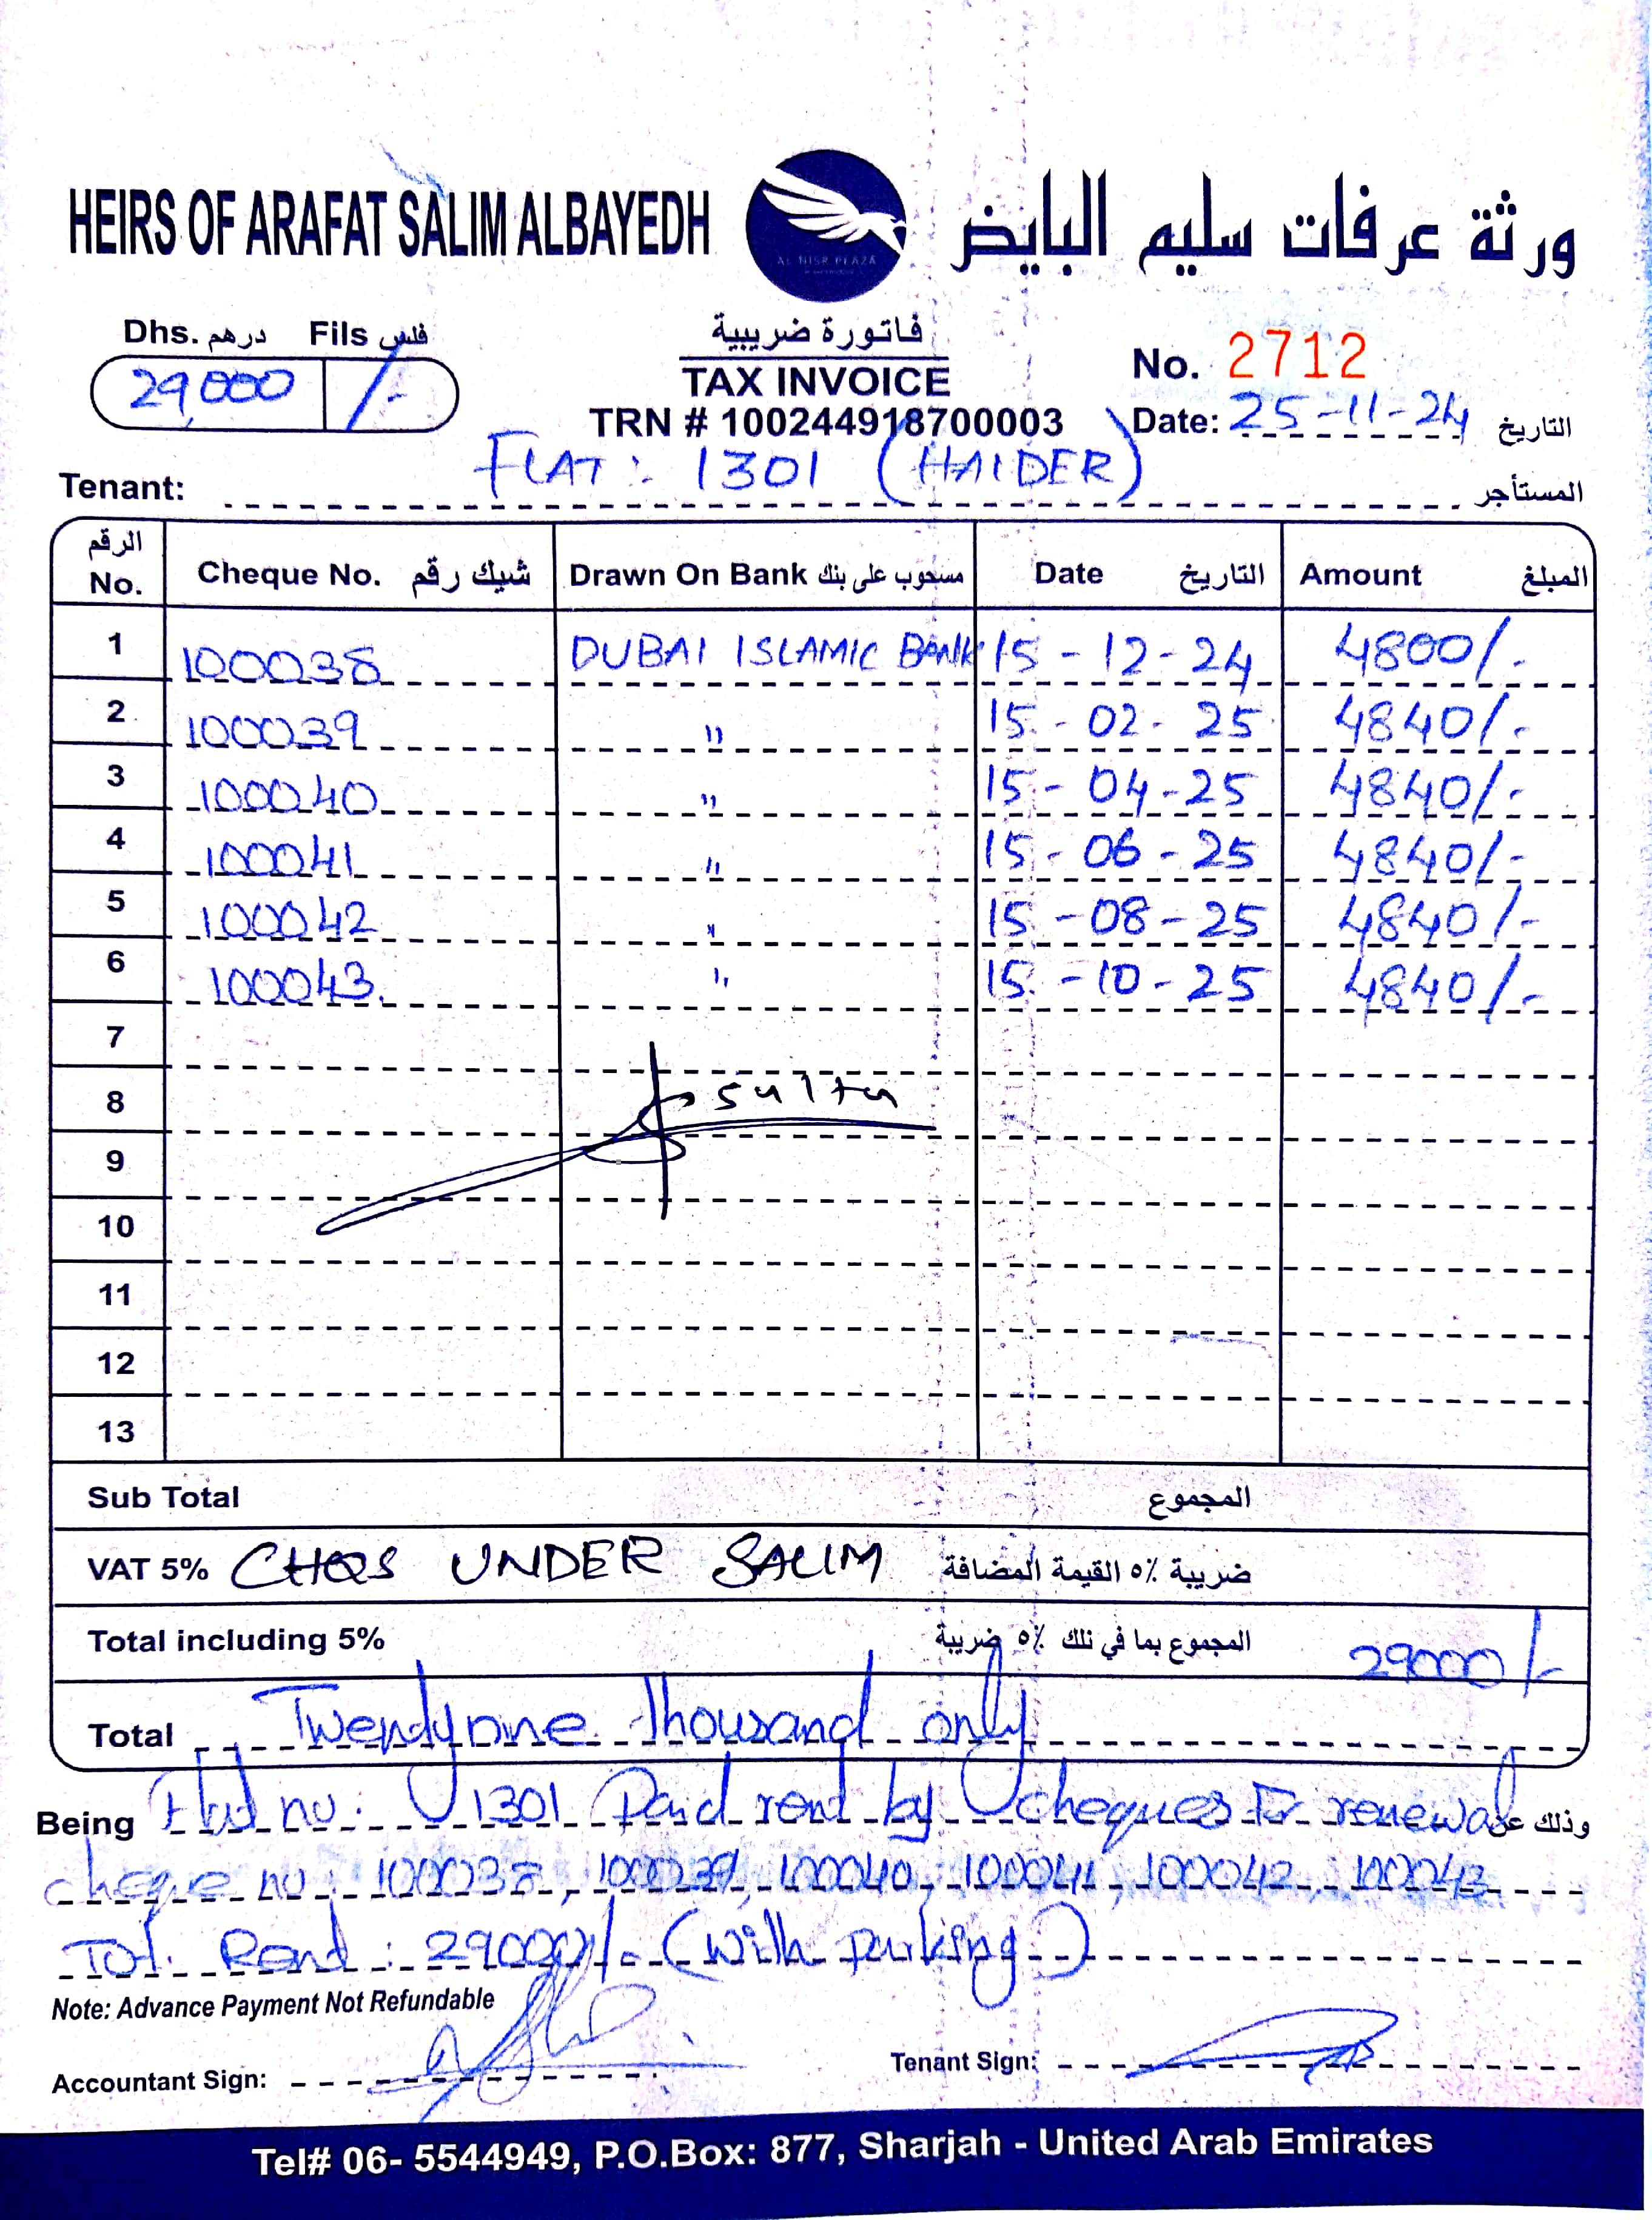 HEIRS OF ARAFAT SALIM ALBAYEDH
ورثة عرفات سليم البايض
AL NISR PLAZA
Dhs. درهم Fils فلس
29,000 /-
فاتورة ضريبية
TAX INVOICE
TRN # 100244918700003
No. 2712
Date: 25-11-24 التاريخ
Tenant: FLAT: 1301 (HAIDER) المستأجر
الرقم No. Cheque No. شيك رقم Drawn On Bank مسحوب على بنك Date التاريخ Amount المبلغ
1 100038 DUBAI ISLAMIC BANK 15-12-24 4800/-
2 100039 " 15-02-25 4840/-
3 100040 " 15-04-25 4840/-
4 100041 " 15-06-25 4840/-
5 100042 " 15-08-25 4840/-
6 100043. " 15-10-25 4840/-
7
8
9
10
11
12
13
Sub Total المجموع
VAT 5% CHQS UNDER SALIM ضريبة ٥٪ القيمة المضافة
Total including 5% المجموع بما في ذلك ٥٪ ضريبة 29000/-
Total Twentynine thousand only
Being Flat no: 1301 Paid rent by cheques for renewal وذلك عن
cheque no: 100038, 100039, 100040, 100041, 100042, 100043
Tot. Rend: 29000/- (with parking)
Note: Advance Payment Not Refundable
Accountant Sign:
Tenant Sign:
Tel# 06- 5544949, P.O.Box: 877, Sharjah - United Arab Emirates